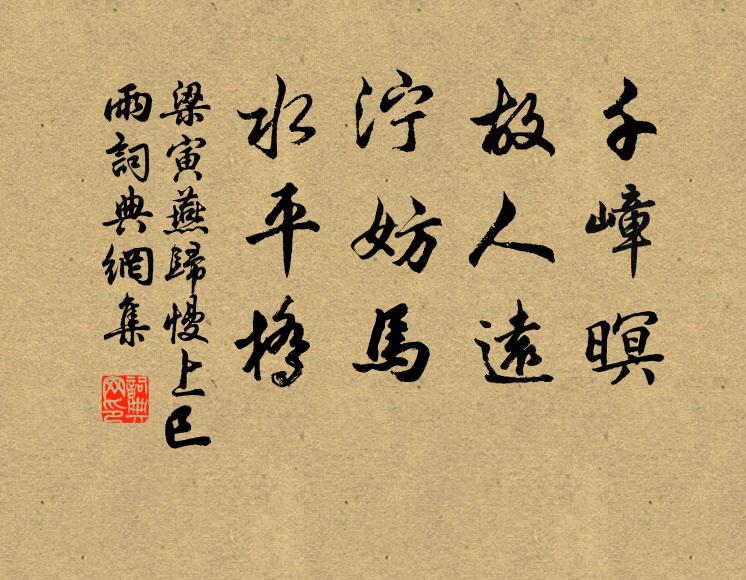 千嶂暝
故人遠
泞妨馬
水平橋
梁寅燕歸慢上巳
雨詞典網集
詞典網印